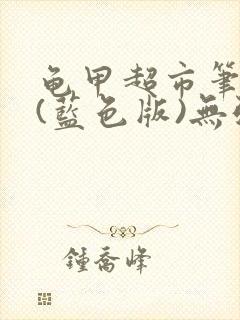 龟甲超市筆
(藍色版)無
鍾喬峰